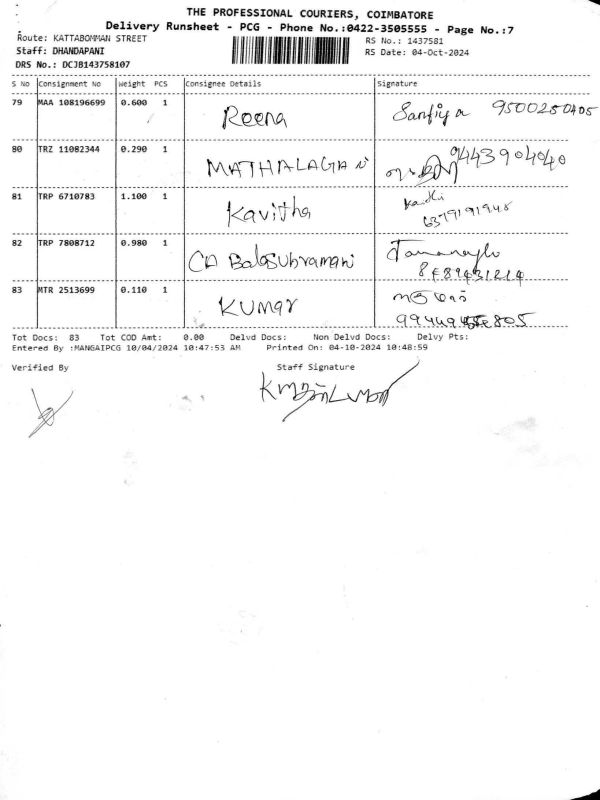 THE PROFESSIONAL COURIERS, COIMBATORE
Delivery Runsheet - PCG - Phone No.:0422-3505555 - Page No.:7
Route: KATTABOMMAN STREET RS No.: 1437581
Staff: DHANDAPANI RS Date: 04-Oct-2024
DRS No.: DCJB143758107
S No Consignment No Weight PCS Consignee Details Signature
79 MAA 108196699 0.600 1 Reena Sanfiya 9500250405
80 TRZ 11082344 0.290 1 MATHALAGAN 9443904040
81 TRP 6710783 1.100 1 Kavitha 6379191948
82 TRP 7808712 0.980 1 CA Balasubramani
83 MTR 2513699 0.110 1 KUMAR
Tot Docs: 83 Tot COD Amt: 0.00 Delvd Docs: Non Delvd Docs: Delvy Pts:
Entered By :MANGAIPCG 10/04/2024 10:47:53 AM Printed On: 04-10-2024 10:48:59
Verified By Staff Signature